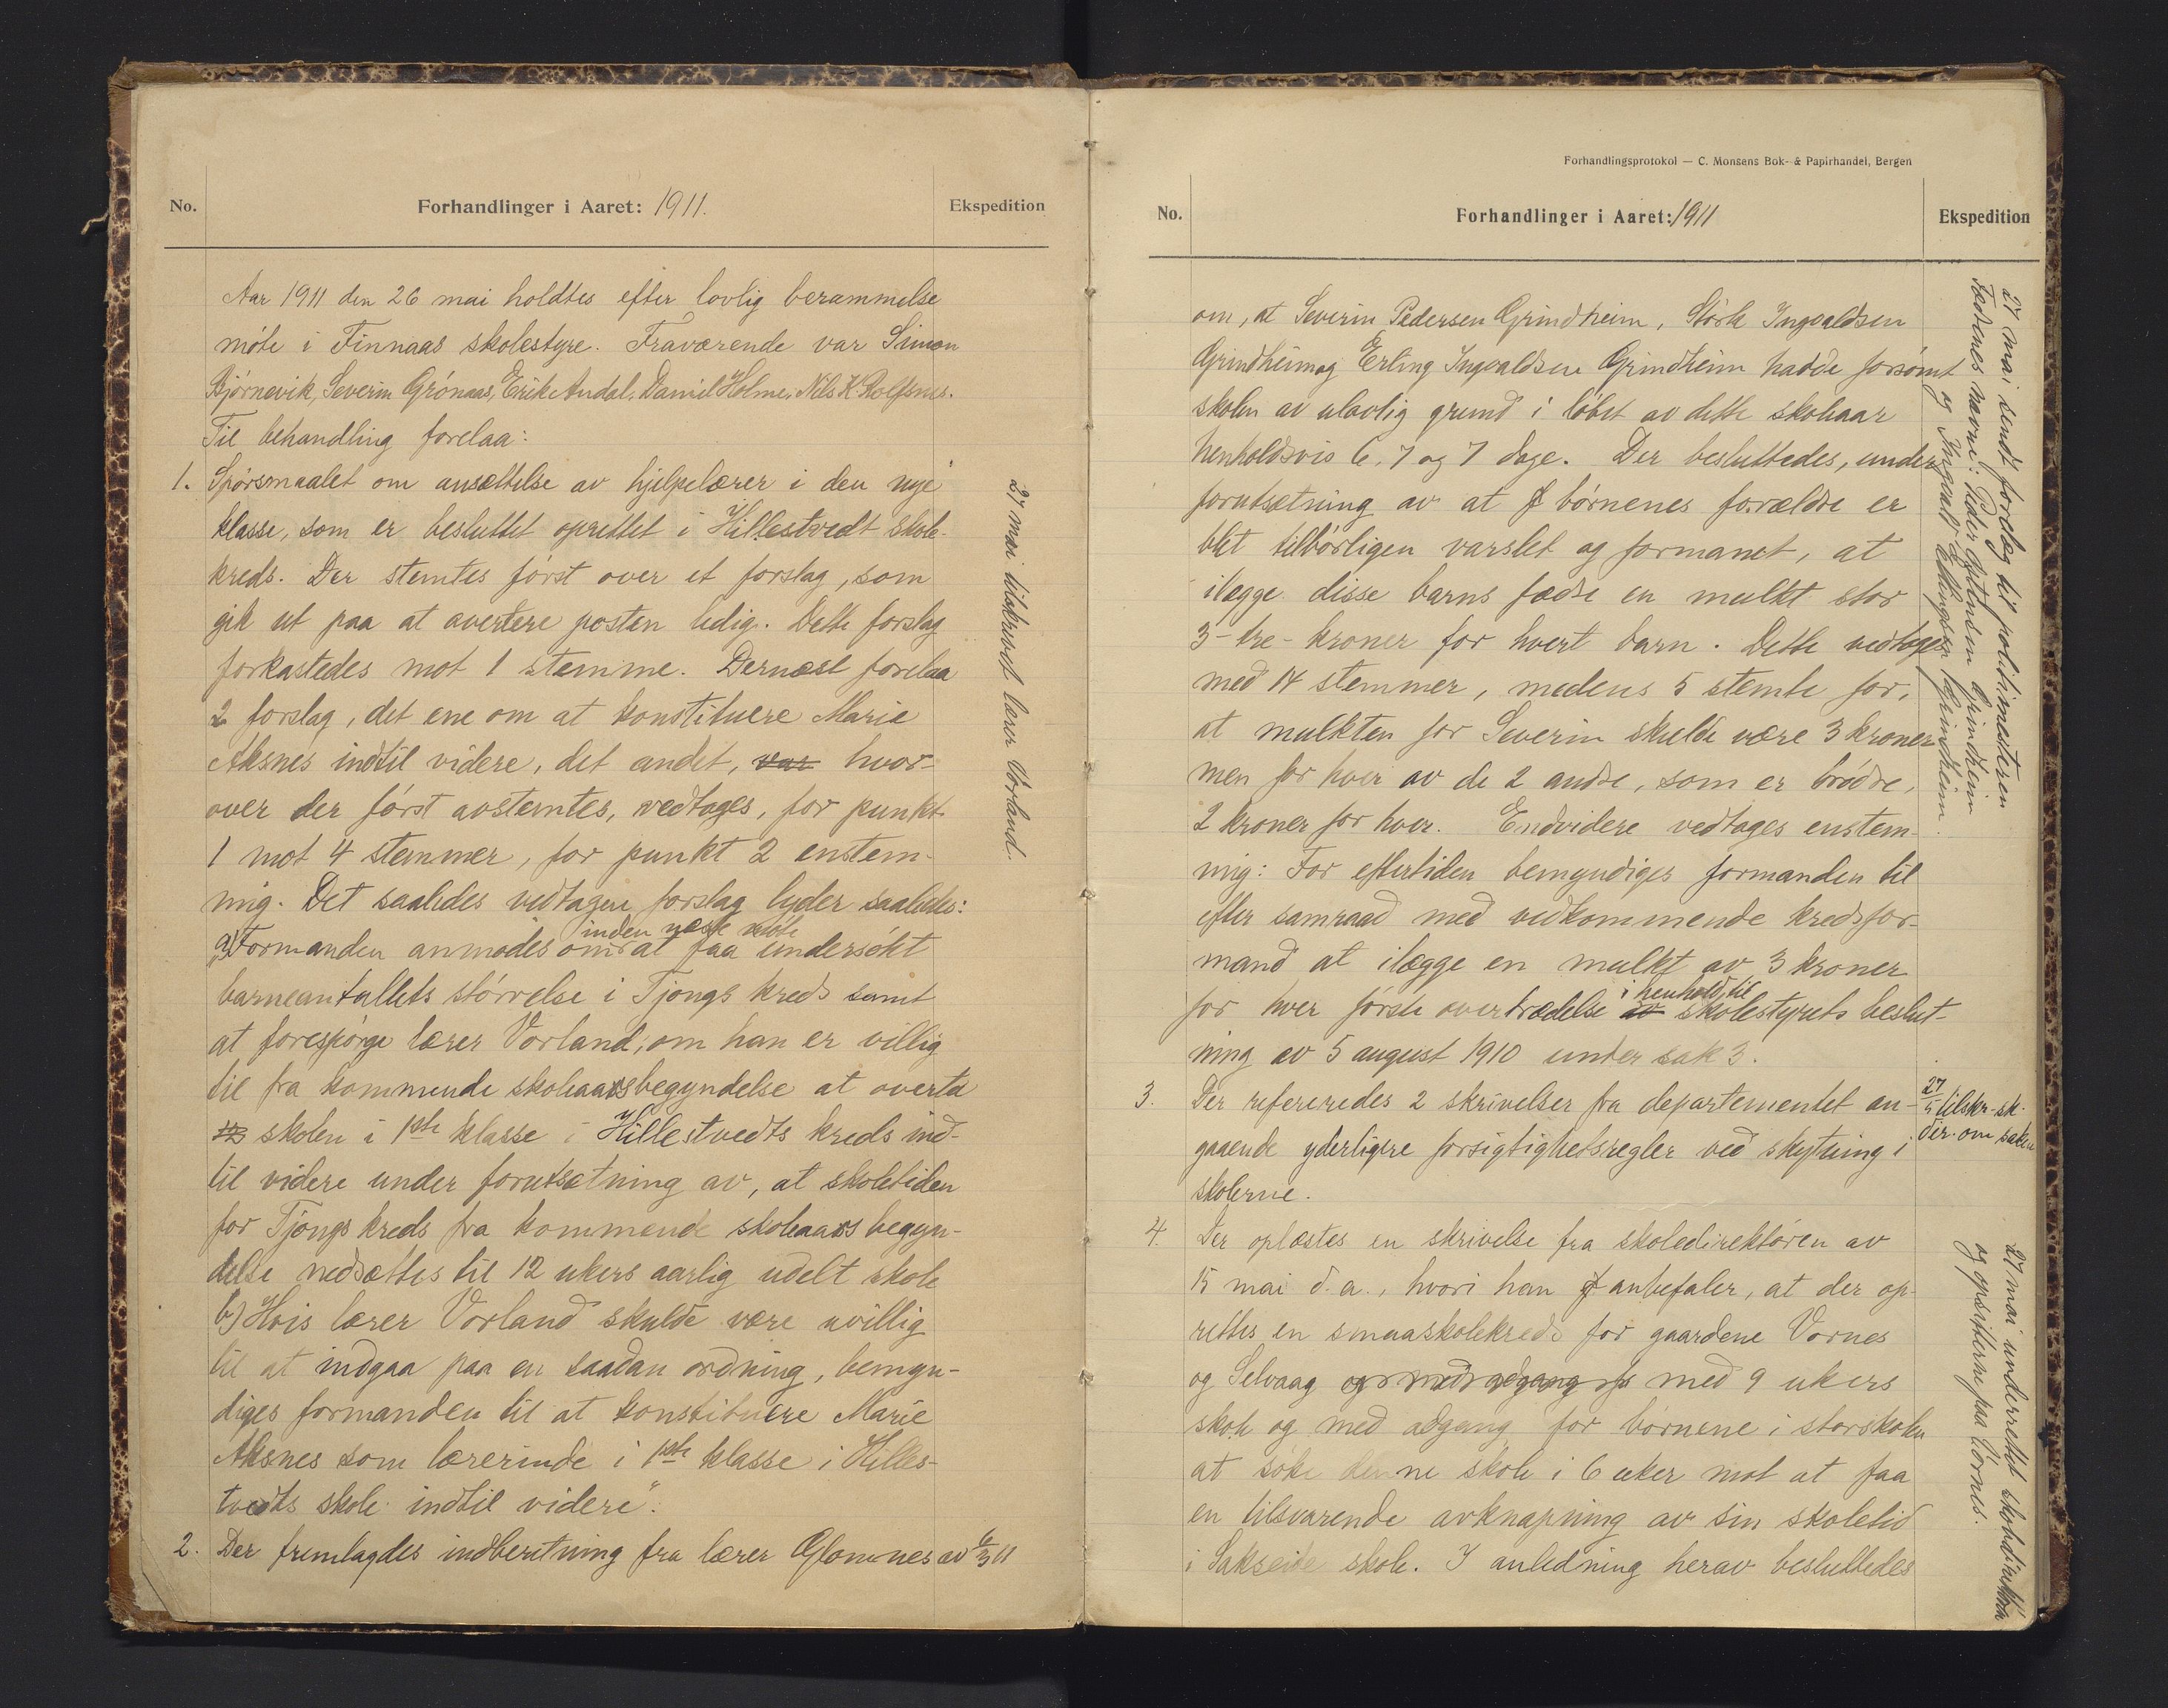 No.
Forhandlinger i Aaret: 1911.
Ekspedition
Aar 1911 den 26 mai holdtes efter lovlig berammelse
møte i Finnaas skolestyre. Fraværende var Simon
Bjørnevik, Severin Grønaas, Erik Andal, Daniel Holme, Nils K Rolfsnes.
Til behandling forelaa:
1. Spørsmaalet om ansættelse av hjelpelærer i den nye
klasse, som er besluttet oprettet i Hillestvedt skole-
kreds. Der stemtes først over et forslag, som
gik ut paa at avertere posten ledig. Dette forslag
forkastedes mot 1 stemme. Dernæst forelaa
2 forslag, det ene om at konstituere Marie
Aksnes indtil videre, det andet, var hvor-
over der først avstemtes, vedtages, for punkt
1 mot 4 stemmer, for punkt 2 enstem-
mig. Det saaledes vedtagne forslag lyder saaledes:
inden næste møte
"a) Formanden anmodes om at faa undersøkt
barneantallets størrelse i Tjongs kreds samt
at forespørge lærer Vorland, om han er villig
til fra kommende skoleaarsbegyndelse at overta
skolen i 1ste klasse i Hillestvedts kreds ind-
til videre under forutsætning av, at skoletiden
for Tjongs kreds fra kommende skoleaars begyn-
delse nedsættes til 12 ukers aarlig udelt skole
b) Hvis lærer Vorland skulde være uvillig
til at indgaa paa en saadan ordning, bemyn-
diges formanden til at konstituere Marie
Aksnes som lærerinde i 1ste klasse i Hilles-
tvedts skole indtil videre".
2. Der fremlagdes indberetning fra lærer Glomnes av 6/3 11
27 mai tilskrevet lærer Vorland.
Forhandlingsprotokol — C. Monsens Bok- & Papirhandel, Bergen
No.
Forhandlinger i Aaret: 1911
Ekspedition
om, at Severin Pedersen Grindheim, Størk Ingvaldsen
Grindheim og Erling Ingvaldsen Grindheim hadde forsømt
skolen av ulovlig grund i løbet av dette skoleaar
henholdsvis 6, 7 og 7 dage. Der besluttedes, under
forutsætning av at børnenes forældre er
blet tilbørligen varslet og formanet, at
ilægge disse barns fædre en mulkt stor
3 - tre - kroner for hvert barn. Dette vedtages
med 14 stemmer, medens 5 stemte for,
at mulkten for Severin skulde være 3 kroner
men for hver av de 2 andre, som er brødre,
2 kroner for hver. Endvidere vedtages enstem-
mig: For eftertiden bemyndiges formanden til
efter samraad med vedkommende kredsfor-
mand at ilægge en mulkt av 3 kroner
i henhold til
for hver første overtrædelse av skolestyrets beslut-
ning av 5 august 1910 under sak 3.
3. Der refereredes 2 skrivelser fra departementet an-
gaaende yderligere forsigtighetsregler ved skytning i
skolerne.
4. Der oplæstes en skrivelse fra skoledirektøren av
15 mai d.a., hvori han anbefaler, at der op-
rettes en smaaskolekreds for gaardene Vornes
og Selvaag og med adgang for med 9 ukers
skole og med adgang for børnene i storskolen
at søke denne skole i 6 uker mot at faa
en tilsvarende avknapning av sin skoletid
i Sakseide skole. I anledning herav besluttedes
27 mai sendt forelæg til politimesteren
Fædrenes navne: Peder Østensen Grindheim
og Ingvald Erlingsen Grindheim.
27/5 tilskr. sk.
dir. om saken
27 mai underrettet skoledirektøren
og opsitterne paa Vornes.